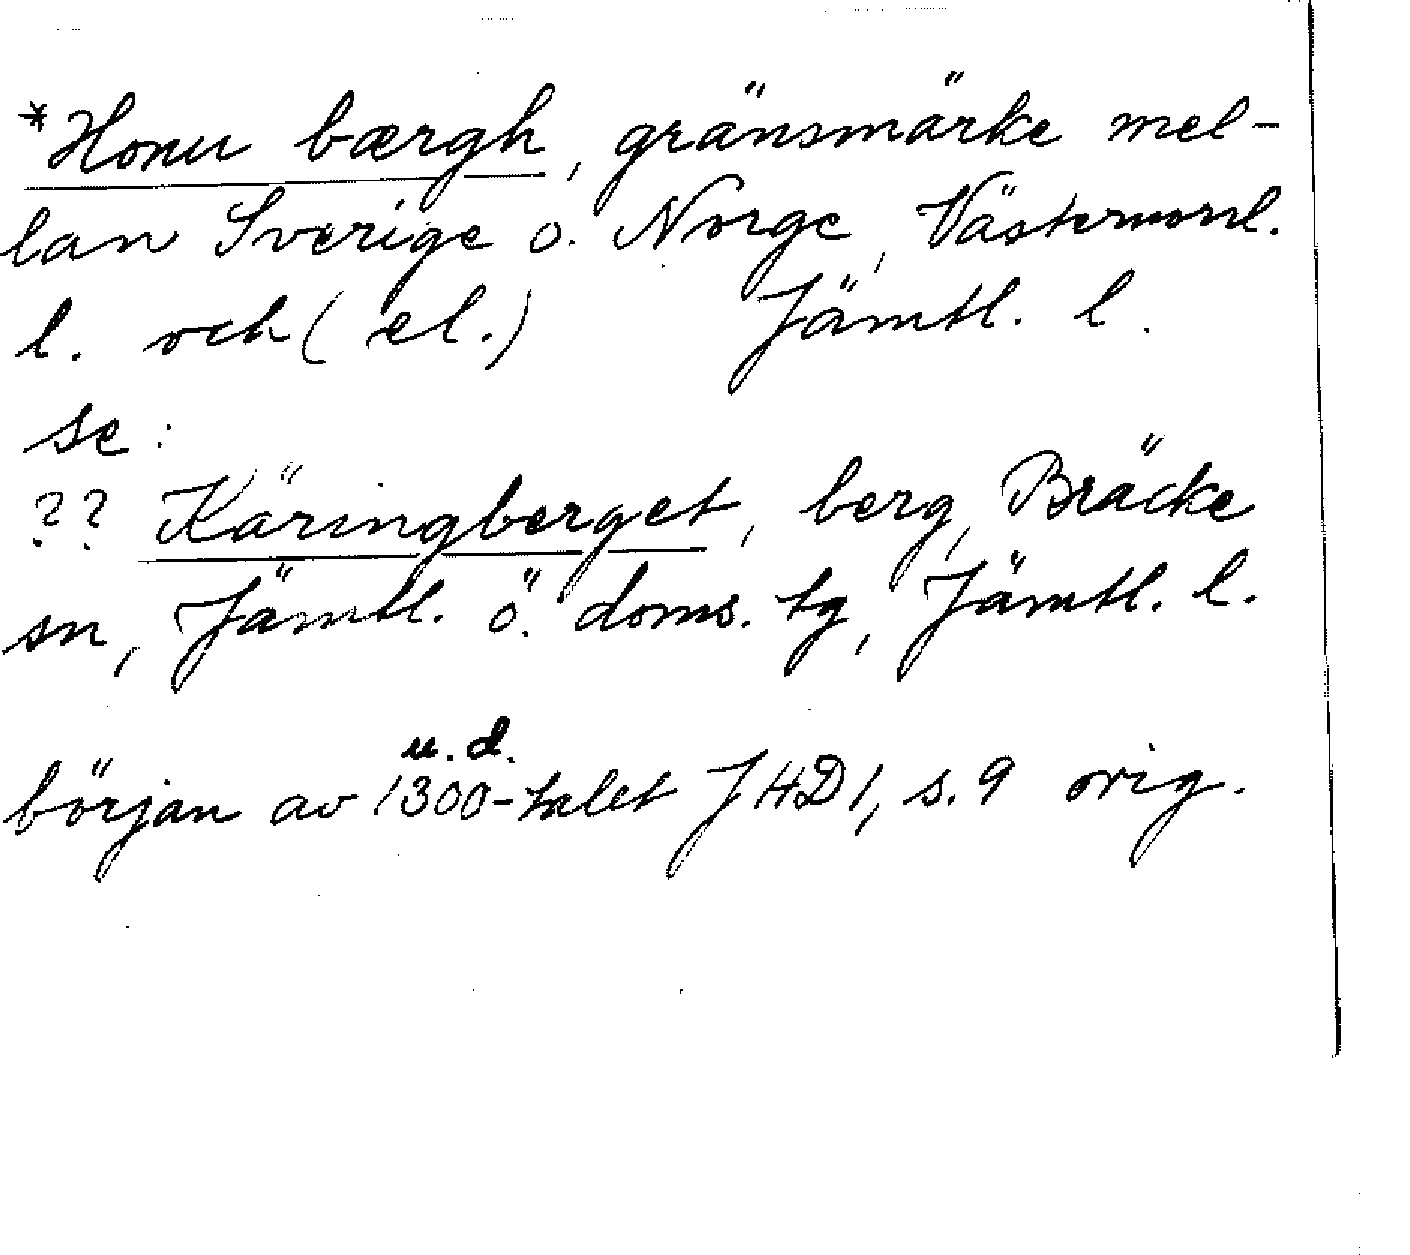 *Honu bærgh, gränsmärke mel-
lan Sverige o. Norge, Västernorrl.
l. och (el.) Jämtl. l.
se:
?? Käringberget, berg, Bräcke
sn, Jämtl. ö. doms. tg, Jämtl. l.
u.d.
början av 1300-talet JHD 1, s. 9 orig.